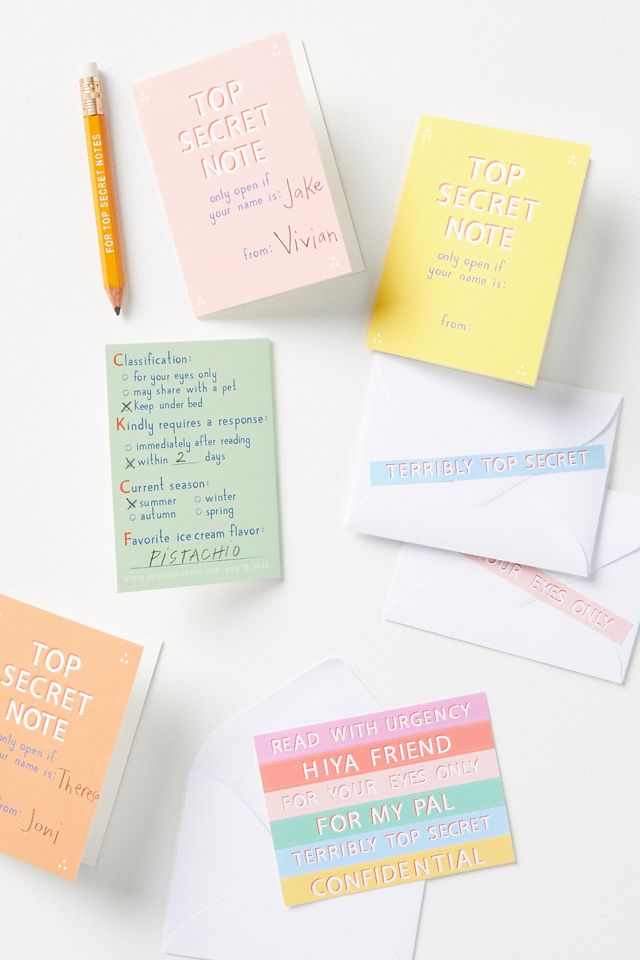 FOR TOP SECRET NOTES
TOP
SECRET
NOTE
only open if
your name is: Jake
from: Vivian
TOP
SECRET
NOTE
only open if
your name is:
from:
Classification:
for your eyes only
may share with a pet
Keep under bed
Kindly requires a response:
immediately after reading
within 2 days
Current season:
summer
winter
autumn
spring
Favorite ice cream flavor:
PISTACHIO
TERRIBLY TOP SECRET
YOUR EYES ONLY
TOP
SECRET
NOTE
only open if
your name is: Theresa
from: Joni
READ WITH URGENCY
HIYA FRIEND
FOR YOUR EYES ONLY
FOR MY PAL
TERRIBLY TOP SECRET
CONFIDENTIAL